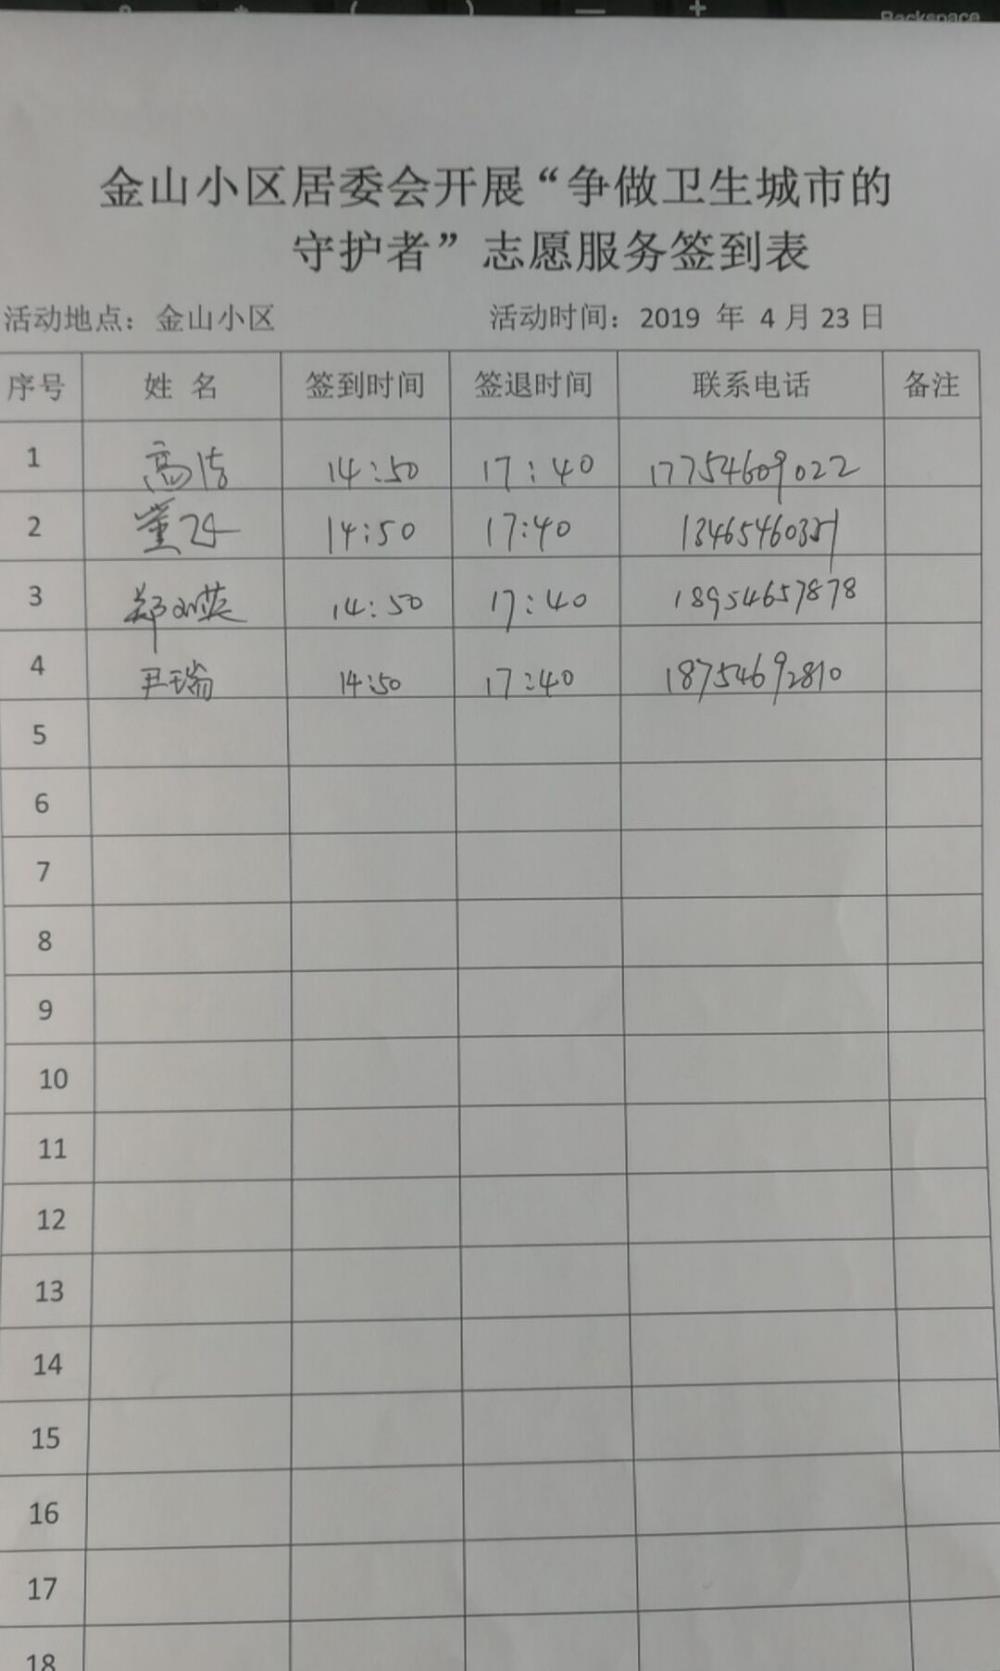 Backspace
金山小区居委会开展“争做卫生城市的
守护者”志愿服务签到表
活动地点：金山小区 活动时间：2019 年 4 月 23 日
序号 姓 名 签到时间 签退时间 联系电话 备注
1 高洁 14:50 17:40 17754609022
2 董 14:50 17:40
3 郑 14:50 17:40 18954657878
4 尹瑞 14:50 17:40 18754692810
5
6
7
8
9
10
11
12
13
14
15
16
17
18